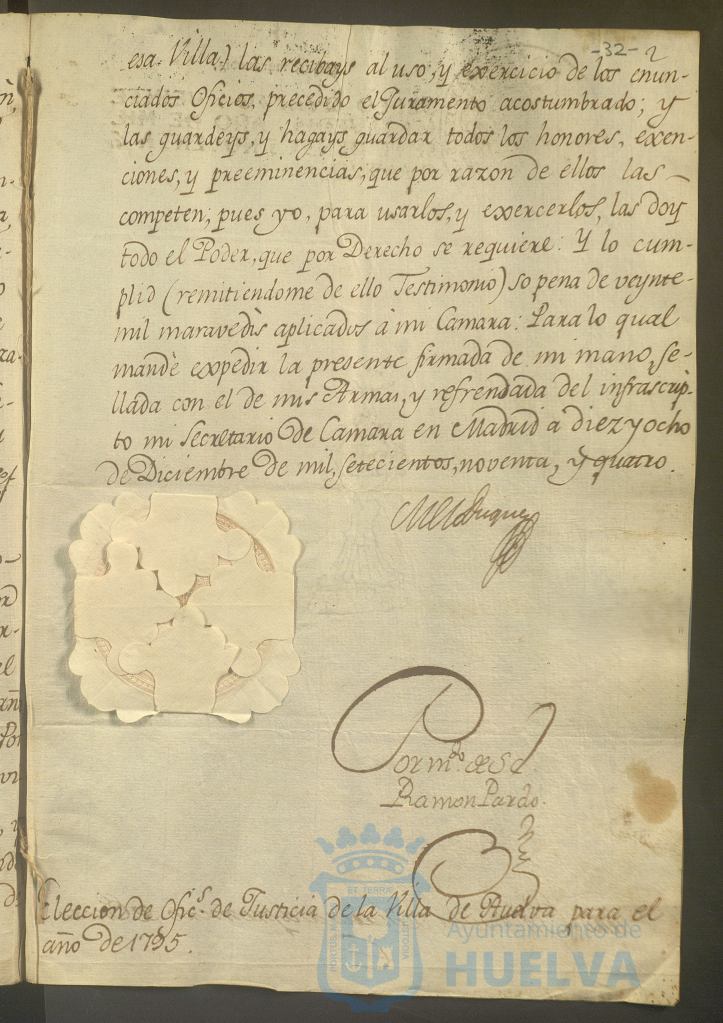 -32-
esa Villa) las recibays al uso, y exercicio de los enun-
ciados Oficios, precedido el Juramento acostumbrado; y
las guardeys, y hagays guardar todos los honores, exen-
ciones, y preeminencias, que por razon de ellos las
competen; pues yo, para usarlos, y exercerlos, las doy
todo el Poder, que por Derecho se requiere: Y lo cum-
plid (remitiendome de ello Testimonio) so pena de veynte
mil maravedis aplicados à mi Camara: Para lo qual
mandè expedir la presente firmada de mi mano, se-
llada con el de mis Armas, y refrendada del infrascrip-
to mi Secretario de Camara en Madrid a diez y ocho
de Diciembre de mil, setecientos, noventa, y quatro.
Duque
Por mdo. de S E.
Ramon Pardo.
Eleccion de Ofics. de Justicia de la Villa de Huelva para el
año de 1795.
Ayuntamiento de
HUELVA